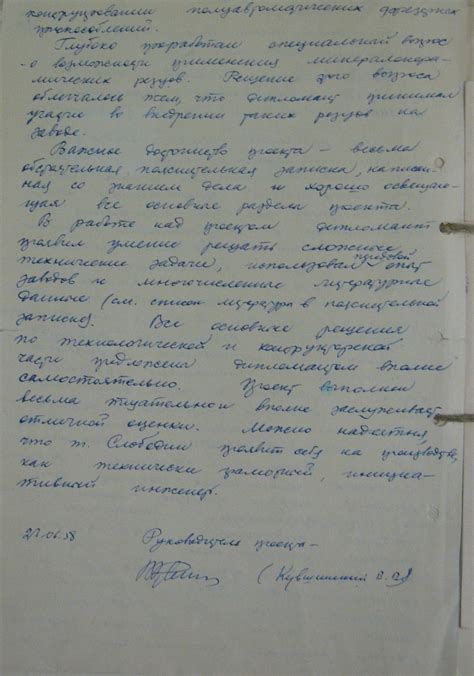 конструировании полуавтоматических фрезерных
приспособлений.
Глубоко проработан специальный вопрос
о возможности применения минералокера-
мических резцов. Решение этого вопроса
облегчалось тем, что дипломант принимал
участие во внедрении таких резцов на
заводе.
Важное достоинство проекта – весьма
обстоятельная пояснительная записка, написан-
ная со знанием дела и хорошо освещаю-
щая все основные разделы проекта.
В работе над проектом дипломант
проявил умение решать сложные
технические задачи, использовал передовой опыт
заводов и многочисленные литературные
данные (см. список литературы в пояснительной
записке). Все основные решения
по технологической и конструкторской
части предложены дипломантом вполне
самостоятельно. Проект выполнен
весьма тщательно и вполне заслуживает
отличной оценки. Можно надеяться,
что т. Слободин проявит себя на производстве,
как технически грамотный, инициа-
тивный инженер.
Руководитель проекта –
(Кувшинский В.В.)